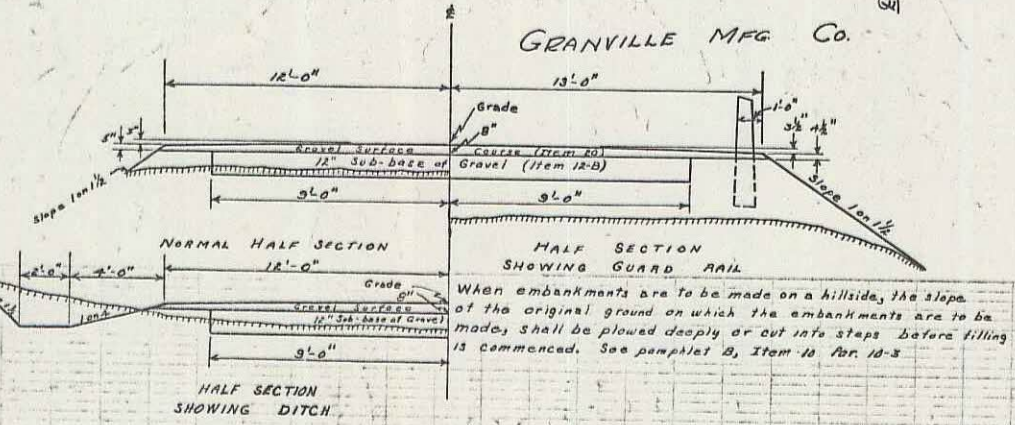 GRANVILLE MFG Co.
12'-0"
13'-0"
Grade
1'-0"
8"
5" 3"
3½" 4½"
Gravel Surface Course (Item 20)
12" Sub-base of Gravel (Item 12-B)
Slope 1 on 1½
Slope 1 on 1½
9'-0"
9'-0"
NORMAL HALF SECTION
HALF SECTION
SHOWING GUARD RAIL
2'-0"
4'-0"
12'-0"
Grade
8"
1 on 4
Gravel Surface
12" Sub-base of Gravel
9'-0"
HALF SECTION
SHOWING DITCH
When embankments are to be made on a hillside, the slope
of the original ground on which the embankments are to be
made, shall be plowed deeply or cut into steps before filling
is commenced. See pamphlet B, Item 10 Par. 10-3